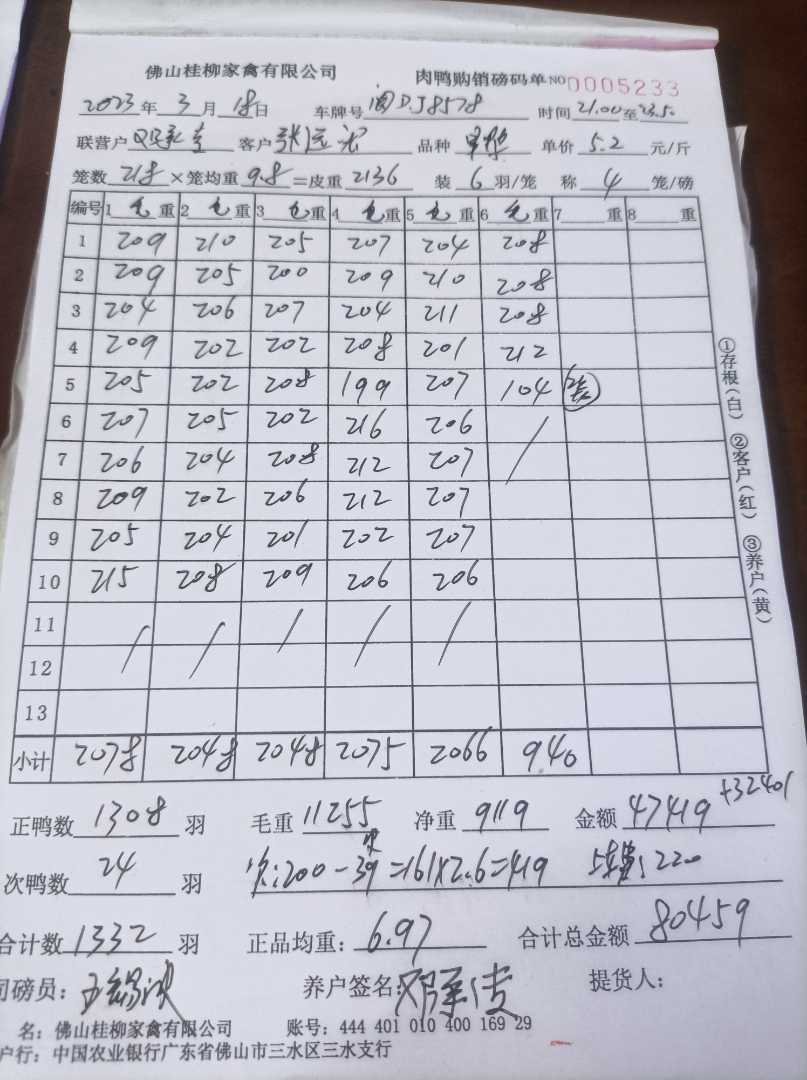 佛山桂柳家禽有限公司 肉鸭购销磅码单 NO 0005233
2023年3月18日 车牌号 闽DJ8578 时间21.00至23.50
联营户 客户 张 品种 单价 5.2 元/斤
笼数 218 ×笼均重 9.8 =皮重 2136 装 6 羽/笼 称 4 笼/磅
编号 1 毛 重 2 毛 重 3 毛 重 4 毛 重 5 毛 重 6 毛 重 7 重 8 重
1 209 210 205 207 204 208
2 209 205 200 209 210 208
3 204 206 207 204 211 208
4 209 202 202 208 201 212
5 205 202 208 199 207 104
6 207 205 202 216 206 /
7 206 204 208 212 207
8 209 202 206 212 207
9 205 204 201 202 207
10 215 208 209 206 206
11 / / / / /
12
13
小计 2078 2048 2048 2075 2066 940
①存根(白) ②客户(红) ③养户(黄)
正鸭数 1308 羽 毛重 11255 净重 9119 金额 47419 +32401
次鸭数 24 羽 次:200-39=161×2.6=419 220
合计数 1332 羽 正品均重: 6.97 合计总金额 80459
司磅员: 养户签名: 提货人:
名: 佛山桂柳家禽有限公司 账号: 444 401 010 400 169 29
户行: 中国农业银行广东省佛山市三水区三水支行